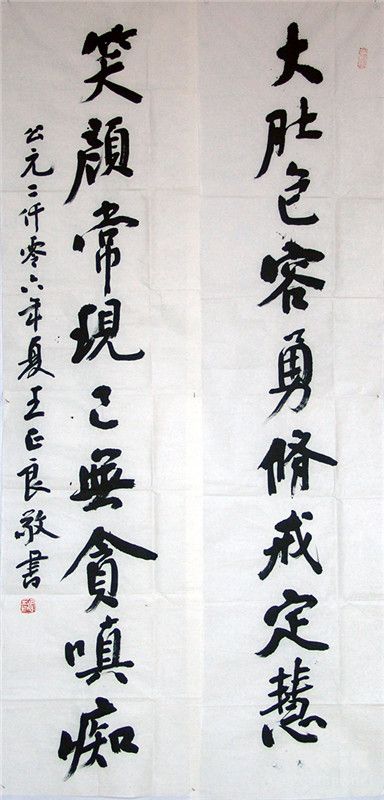 大肚包容勇脩戒定慧
笑顏常現已無貪嗔痴
公元二仟零六年夏王正良敬書